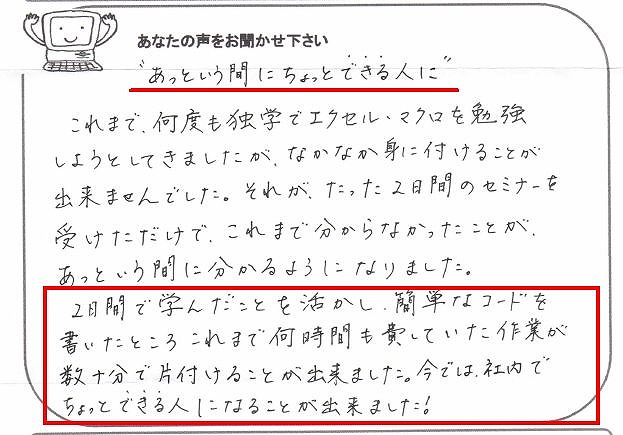 あなたの声をお聞かせ下さい
"あっという間にちょっとできる人に"
これまで、何度も独学でエクセル・マクロを勉強
しようとしてきましたが、なかなか身に付けることが
出来ませんでした。それが、たった2日間のセミナーを
受けただけで、これまで分からなかったことが、
あっという間に分かるようになりました。
2日間で学んだことを活かし、簡単なコードを
書いたところ これまで何時間も費していた作業が
数十分で片付けることが出来ました。今では、社内で
ちょっとできる人になることが出来ました!